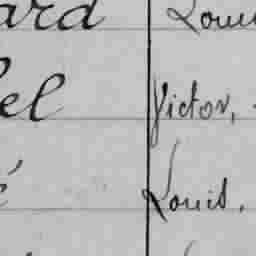 ard Loui
el Victor,
é Louis,